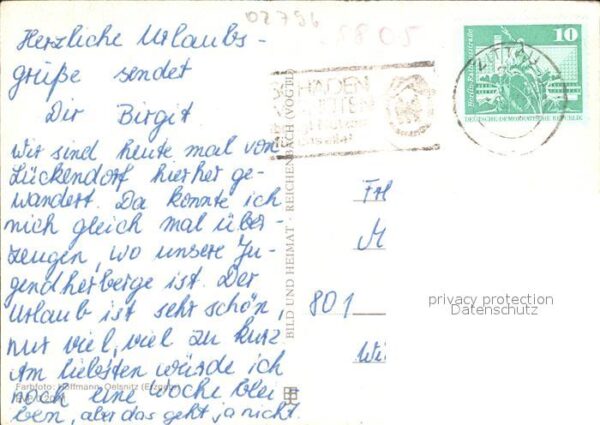 02796
5805
Herzliche Urlaubs-
grüße sendet
Dir Birgit.
Wir sind heute mal von
Lückendorf hierher ge-
wandert. Da konnte ich
mich gleich mal über-
zeugen, wo unsere Ju-
gendherberge ist. Der
Urlaub ist sehr schön,
nur viel, viel zu kurz.
Am liebsten würde ich
noch eine Woche blei
ben, aber das geht ja nicht.
Farbfoto: Hoffmann, Oelsnitz (Erzgeb.)
BILD UND HEIMAT · REICHENBACH (VOGTL)
SCHADEN
ZITTAU
10
DEUTSCHE DEMOKRATISCHE REPUBLIK
Frl
M
801
privacy protection
Datenschutz